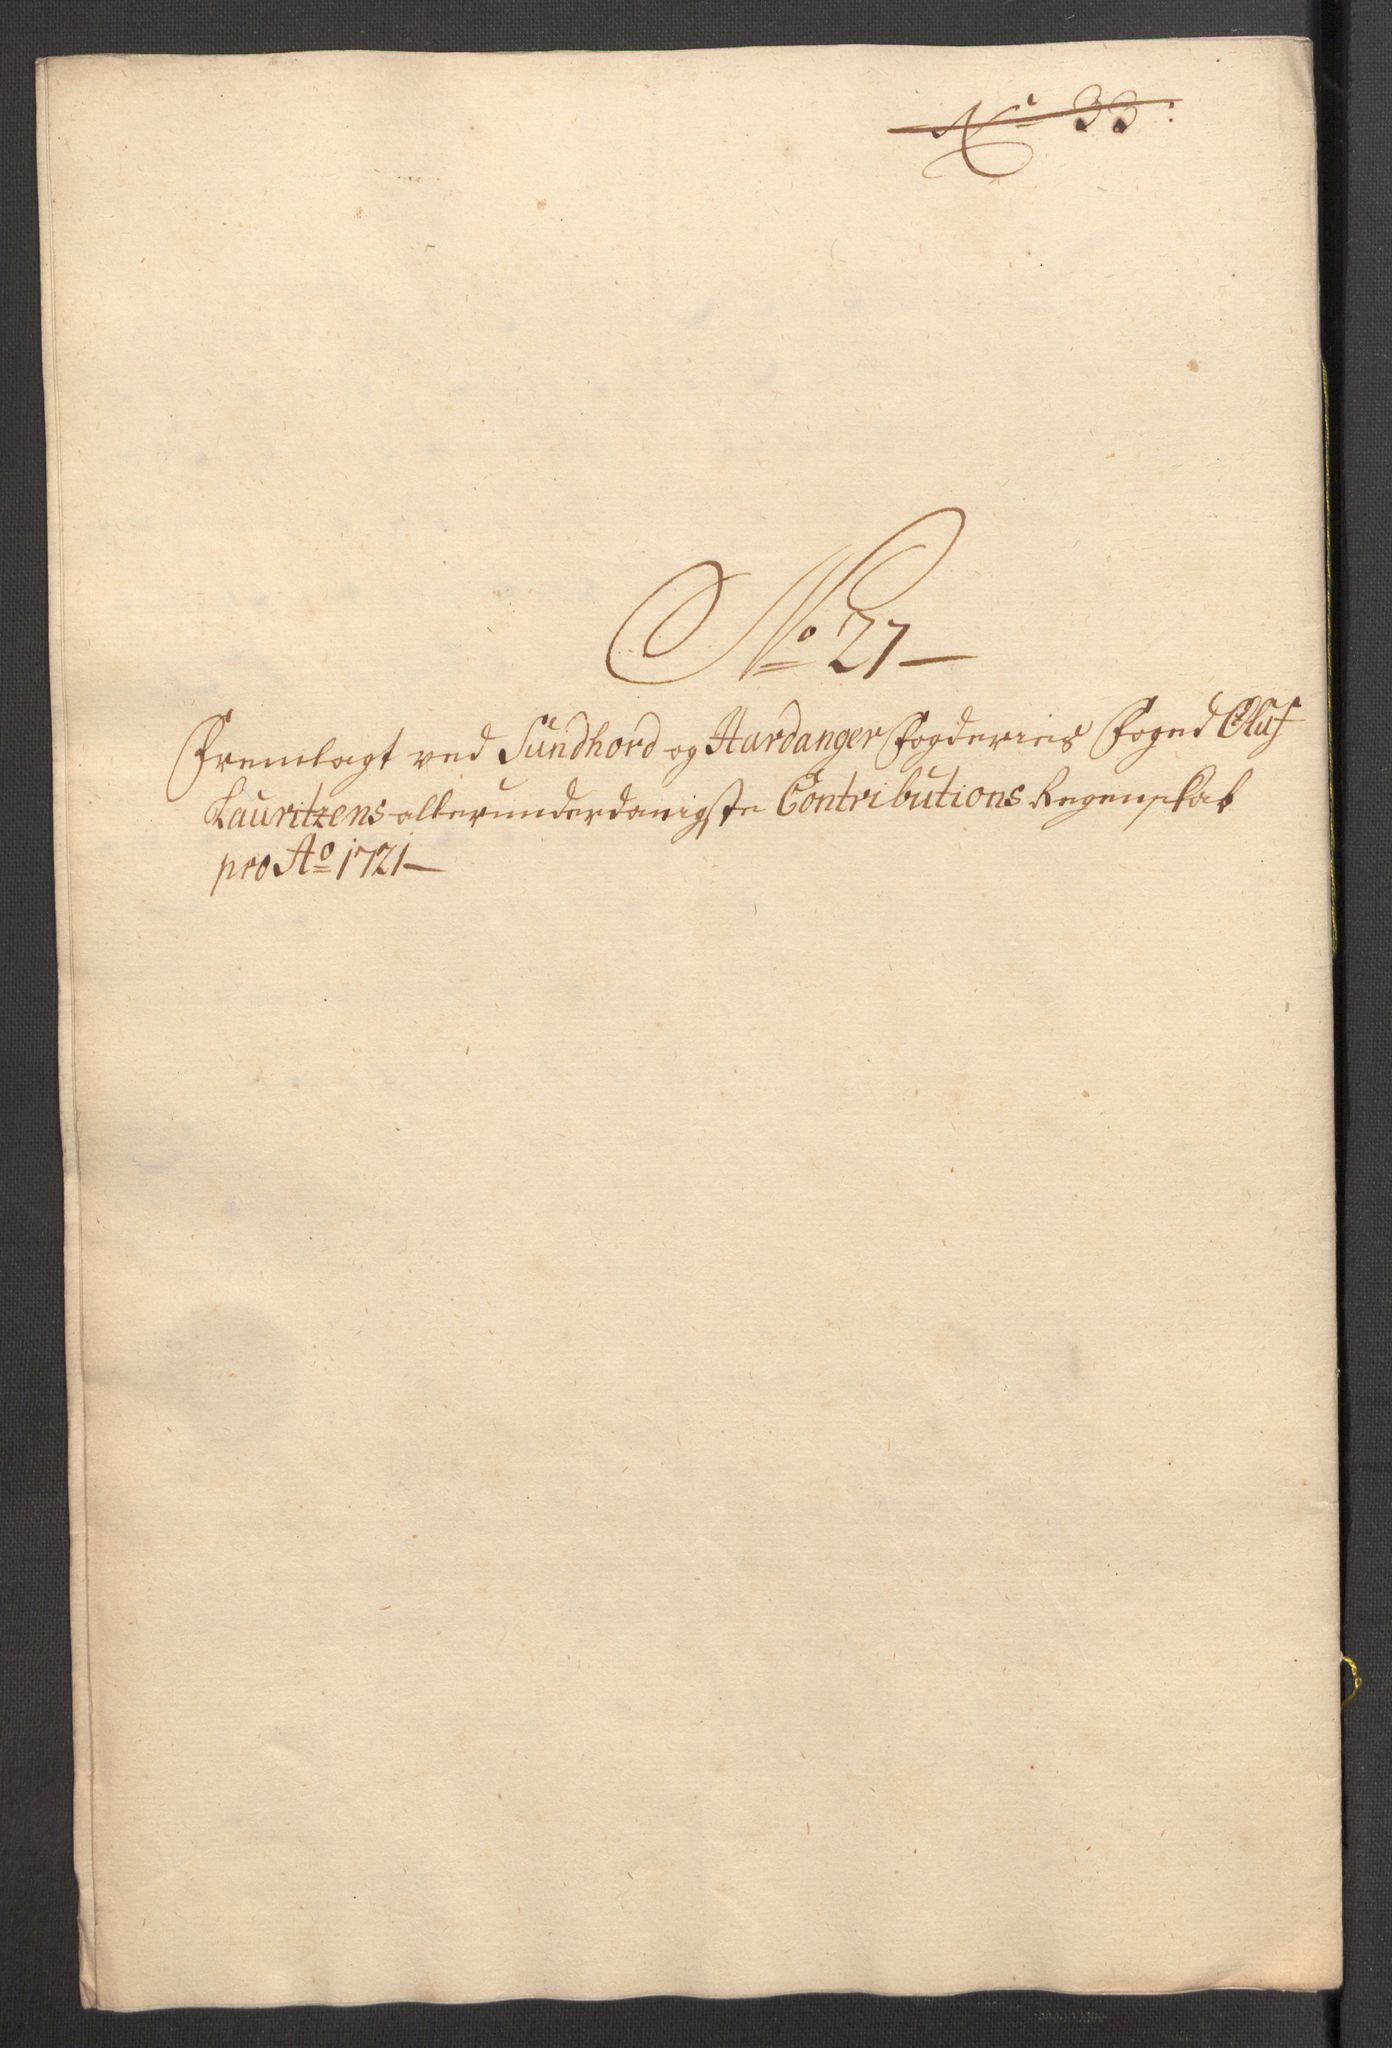 No 33:
No 27
Fremlagt ved Sundhord og Hardanger Fogderies Foged Oluf
Lauritzens allerunderdanigste Contributions Regenskab
pro Ao 1721